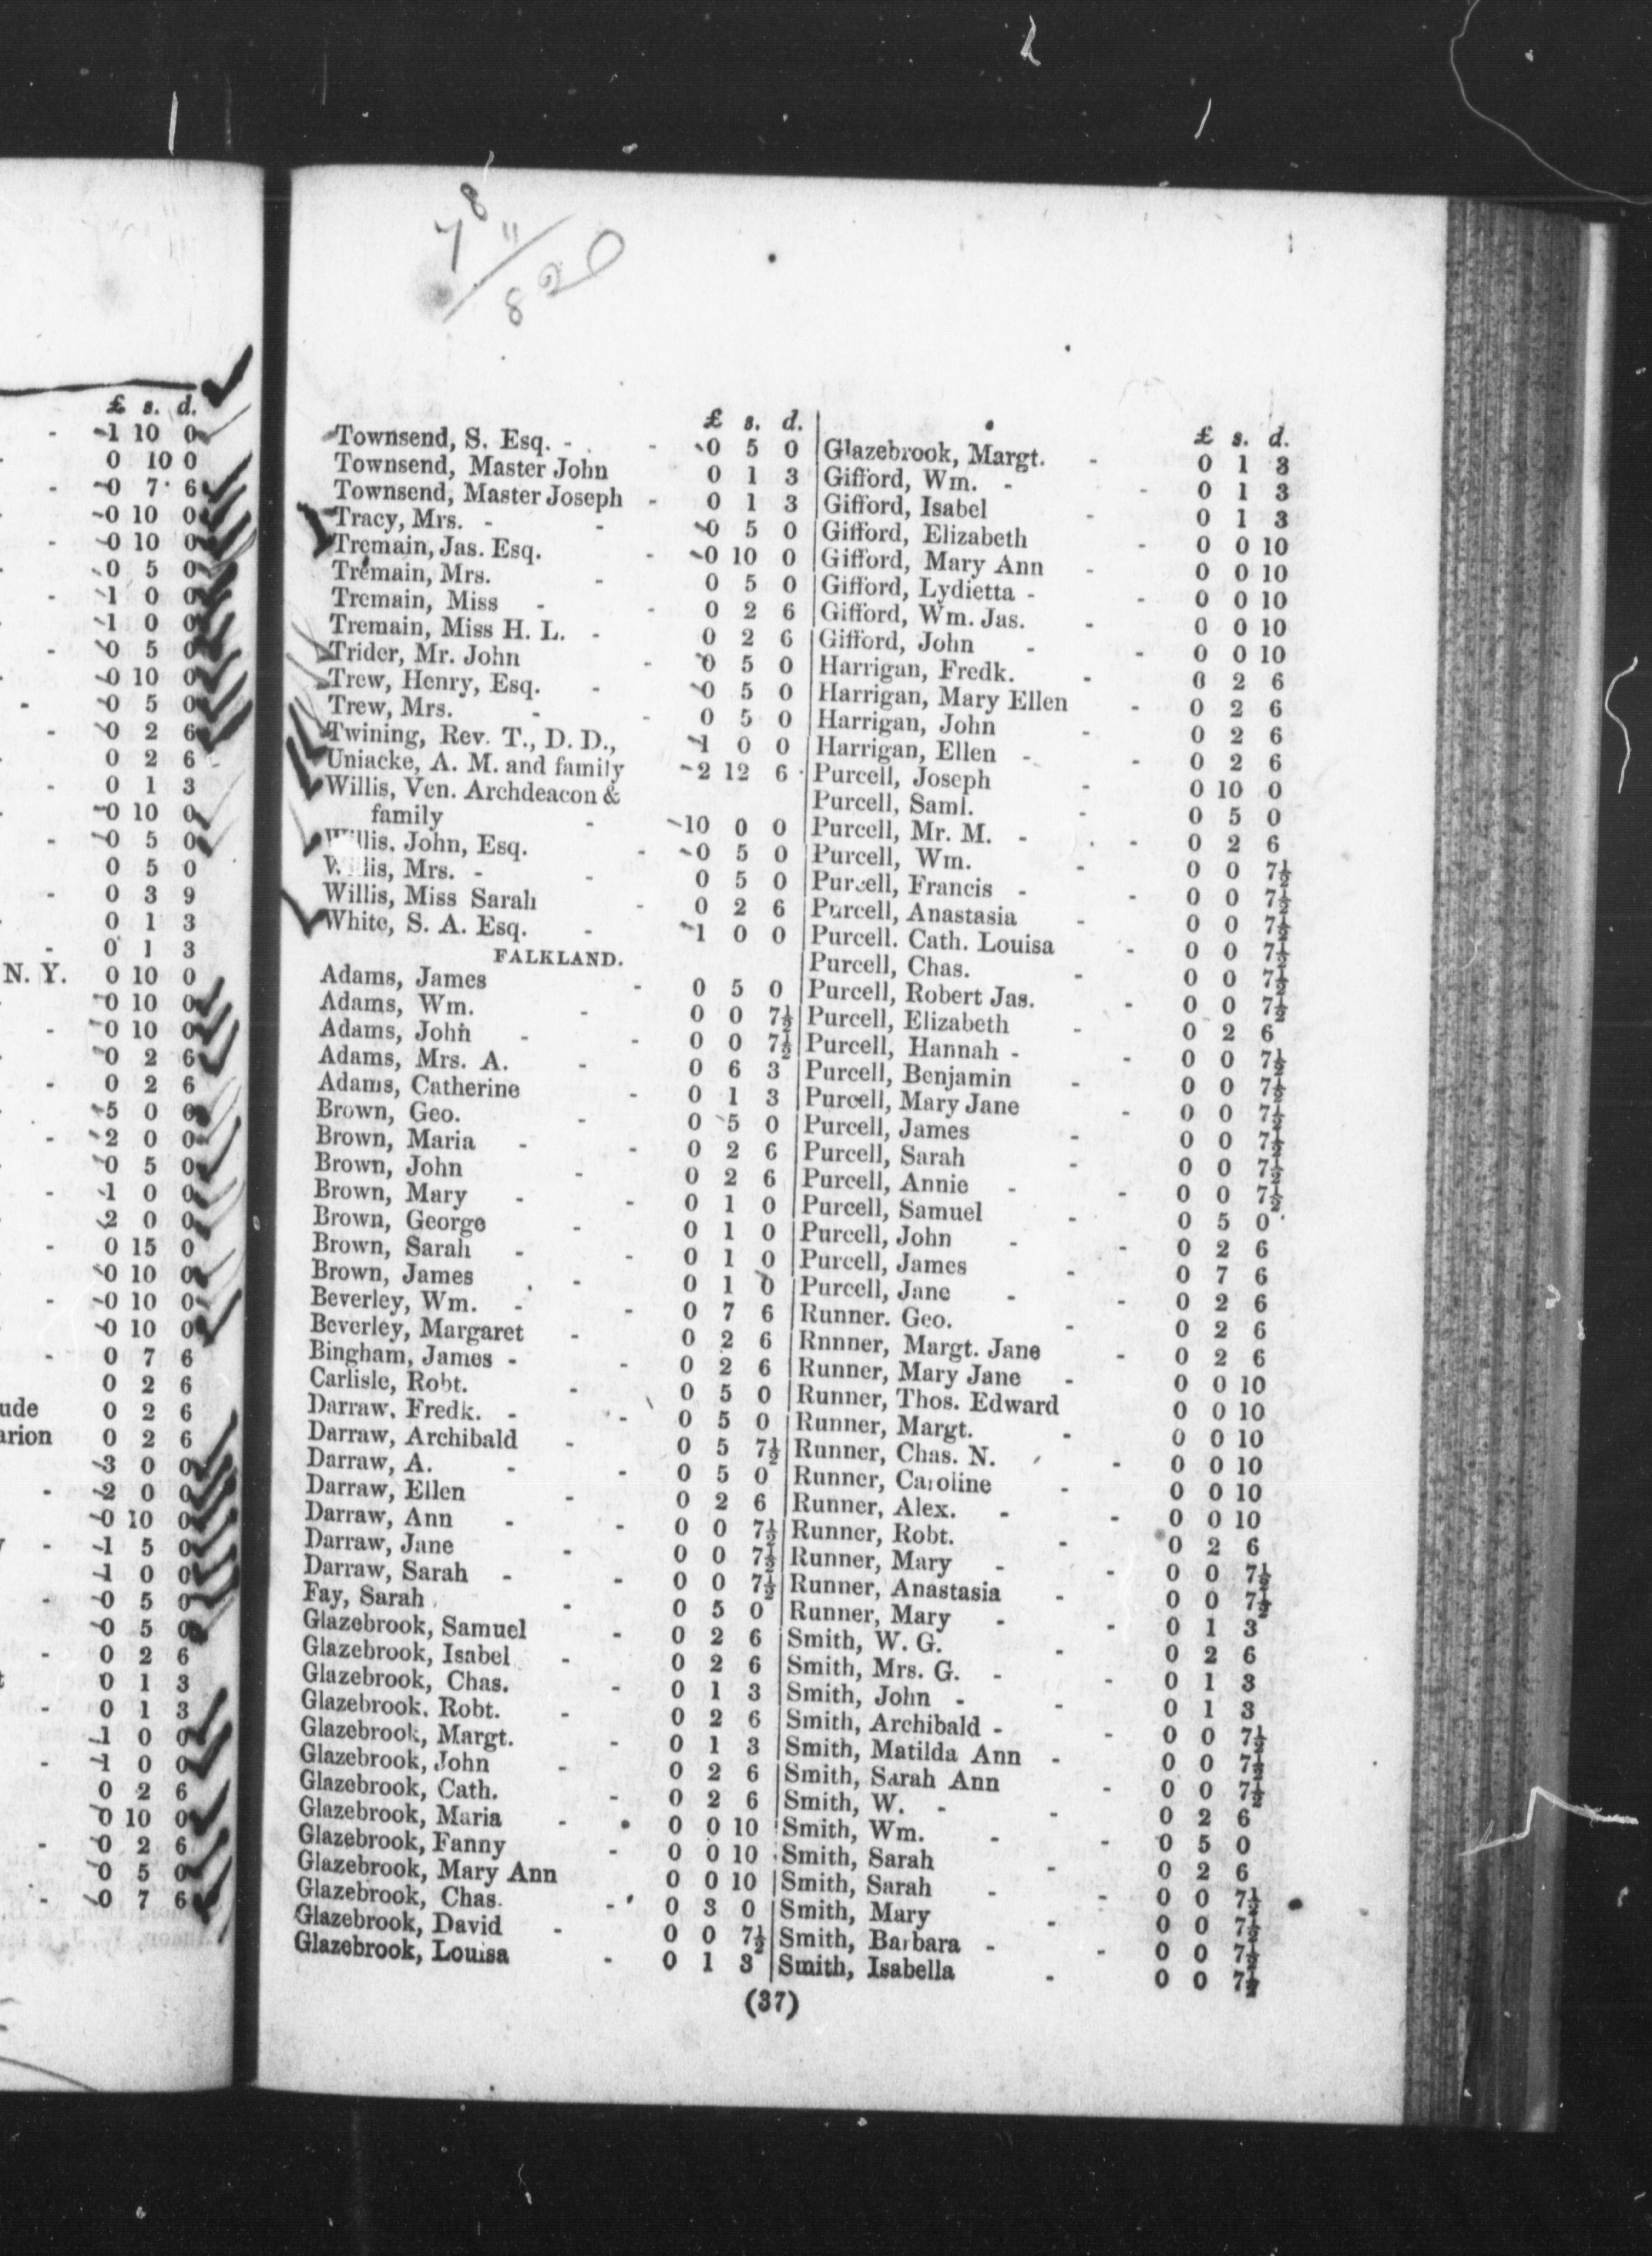 £ s. d.
1 10 0
0 10 0
0 7 6
0 10 0
0 10 0
0 5 0
1 0 0
1 0 0
0 5 0
0 10 0
0 5 0
0 2 6
0 2 6
0 1 3
0 10 0
0 5 0
0 5 0
0 3 9
0 1 3
0 1 3
N. Y. 0 10 0
0 10 0
0 10 0
0 2 6
0 2 6
5 0 0
2 0 0
0 5 0
1 0 0
2 0 0
0 15 0
0 10 0
0 10 0
0 10 0
0 7 6
0 2 6
ude 0 2 6
arion 0 2 6
3 0 0
2 0 0
0 10 0
1 5 0
1 0 0
0 5 0
0 5 0
0 2 6
0 1 3
0 1 3
1 0 0
1 0 0
0 2 6
0 10 0
0 2 6
0 5 0
0 7 6
£ s. d.
Townsend, S. Esq. - - 0 5 0
Townsend, Master John 0 1 3
Townsend, Master Joseph - 0 1 3
Tracy, Mrs. - - 0 5 0
Tremain, Jas. Esq. - 0 10 0
Tremain, Mrs. - 0 5 0
Tremain, Miss - - 0 2 6
Tremain, Miss H. L. - 0 2 6
Trider, Mr. John - 0 5 0
Trew, Henry, Esq. - 0 5 0
Trew, Mrs. - - 0 5 0
Twining, Rev. T., D. D., 1 0 0
Uniacke, A. M. and family 2 12 6
Willis, Ven. Archdeacon &
family - 10 0 0
Willis, John, Esq. - 0 5 0
Willis, Mrs. - - 0 5 0
Willis, Miss Sarah - 0 2 6
White, S. A. Esq. - 1 0 0
FALKLAND.
Adams, James - 0 5 0
Adams, Wm. - 0 0 7½
Adams, John - - 0 0 7½
Adams, Mrs. A. - 0 6 3
Adams, Catherine - 0 1 3
Brown, Geo. - 0 5 0
Brown, Maria - - 0 2 6
Brown, John - 0 2 6
Brown, Mary - - 0 1 0
Brown, George - 0 1 0
Brown, Sarah - - 0 1 0
Brown, James - 0 1 0
Beverley, Wm. - - 0 7 6
Beverley, Margaret - 0 2 6
Bingham, James - - 0 2 6
Carlisle, Robt. - 0 5 0
Darraw, Fredk. - - 0 5 0
Darraw, Archibald - 0 5 7½
Darraw, A. - - 0 5 0
Darraw, Ellen - 0 2 6
Darraw, Ann - - 0 0 7½
Darraw, Jane - 0 0 7½
Darraw, Sarah - - 0 0 7½
Fay, Sarah - 0 5 0
Glazebrook, Samuel - 0 2 6
Glazebrook, Isabel - 0 2 6
Glazebrook, Chas. - 0 1 3
Glazebrook. Robt. - 0 2 6
Glazebrook, Margt. - 0 1 3
Glazebrook, John - 0 2 6
Glazebrook, Cath. - 0 2 6
Glazebrook, Maria - 0 0 10
Glazebrook, Fanny - 0 0 10
Glazebrook, Mary Ann 0 0 10
Glazebrook, Chas. - 0 3 0
Glazebrook, David - 0 0 7½
Glazebrook, Louisa - 0 1 3
£ s. d.
Glazebrook, Margt. - 0 1 3
Gifford, Wm. - - 0 1 3
Gifford, Isabel - 0 1 3
Gifford, Elizabeth - 0 0 10
Gifford, Mary Ann - 0 0 10
Gifford, Lydietta - - 0 0 10
Gifford, Wm. Jas. - 0 0 10
Gifford, John - - 0 0 10
Harrigan, Fredk. - 0 2 6
Harrigan, Mary Ellen - 0 2 6
Harrigan, John - 0 2 6
Harrigan, Ellen - - 0 2 6
Purcell, Joseph - 0 10 0
Purcell, Saml. - 0 5 0
Purcell, Mr. M. - - 0 2 6
Purcell, Wm. - 0 0 7½
Purcell, Francis - - 0 0 7½
Purcell, Anastasia - 0 0 7½
Purcell. Cath. Louisa - 0 0 7½
Purcell, Chas. - 0 0 7½
Purcell, Robert Jas. - 0 0 7½
Purcell, Elizabeth - 0 2 6
Purcell, Hannah - - 0 0 7½
Purcell, Benjamin - 0 0 7½
Purcell, Mary Jane - 0 0 7½
Purcell, James - 0 0 7½
Purcell, Sarah - 0 0 7½
Purcell, Annie - - 0 0 7½
Purcell, Samuel - 0 5 0
Purcell, John - - 0 2 6
Purcell, James - 0 7 6
Purcell, Jane - - 0 2 6
Runner. Geo. - 0 2 6
Rnnner, Margt. Jane - 0 2 6
Runner, Mary Jane - 0 0 10
Runner, Thos. Edward 0 0 10
Runner, Margt. - 0 0 10
Runner, Chas. N. - 0 0 10
Runner, Caroline - 0 0 10
Runner, Alex. - - 0 0 10
Runner, Robt. - 0 2 6
Runner, Mary - - 0 0 7½
Runner, Anastasia - 0 0 7½
Runner, Mary - - 0 1 3
Smith, W. G. - 0 2 6
Smith, Mrs. G. - - 0 1 3
Smith, John - - 0 1 3
Smith, Archibald - - 0 0 7½
Smith, Matilda Ann - 0 0 7½
Smith, Sarah Ann - 0 0 7½
Smith, W. - - 0 2 6
Smith, Wm. - - 0 5 0
Smith, Sarah - 0 2 6
Smith, Sarah - - 0 0 7½
Smith, Mary - 0 0 7½
Smith, Barbara - - 0 0 7½
Smith, Isabella - 0 0 7½
(37)